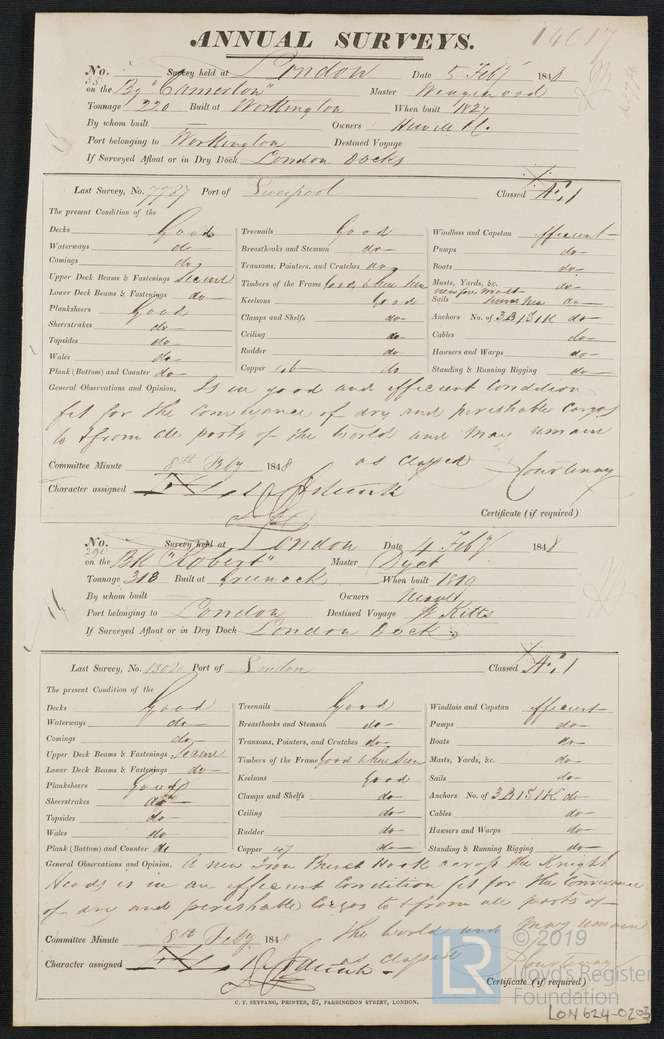 14617
ANNUAL SURVEYS.
No. Survey held at London Date 5 Feby 1848
on the Bg "Camerton" Master
Tonnage 220 Built at Workington When built 1827
By whom built — Owners
Port belonging to Workington Destined Voyage
If Surveyed Afloat or in Dry Dock London Docks
Last Survey, No. 7727 Port of Liverpool Classed Æ 1
The present Condition of the
Decks Good
Waterways do
Comings do
Upper Deck Beams & Fastenings Secure
Lower Deck Beams & Fastenings do
Planksheers Good
Sheerstrakes do
Topsides do
Wales do
Plank (Bottom) and Counter do
Treenails Good
Breasthooks and Stemson do
Transoms, Pointers, and Crutches do
Timbers of the Frame Good where seen
Keelsons Good
Clamps and Shelfs do
Ceiling do
Rudder do
Copper do
Windlass and Capstan efficient
Pumps do
Boats do
Masts, Yards, &c. do
new fore mast
Sails do
Anchors No. of 3B 1S 1K do
Cables do
Hawsers and Warps do
Standing & Running Rigging do
General Observations and Opinion, Is in good and efficient condition
fit for the conveyance of dry and perishable cargos
to & from all parts of the World and may remain
as classed Courtenay
Committee Minute 8th Feby 1848
Character assigned
Certificate (if required)
No. 290 Survey held at London Date 4 Feby 1848
on the Bk "Robert" Master
Tonnage 313 Built at Greenock When built 1810
By whom built Owners
Port belonging to London Destined Voyage St Kitts
If Surveyed Afloat or in Dry Dock London Docks
Last Survey, No. Port of London Classed Æ 1
The present Condition of the
Decks Good
Waterways do
Comings do
Upper Deck Beams & Fastenings Secure
Lower Deck Beams & Fastenings do
Planksheers Good
Sheerstrakes do
Topsides do
Wales do
Plank (Bottom) and Counter do
Treenails Good
Breasthooks and Stemson do
Transoms, Pointers, and Crutches do
Timbers of the Frame Good where seen
Keelsons Good
Clamps and Shelfs do
Ceiling do
Rudder do
Copper do
Windlass and Capstan efficient
Pumps do
Boats do
Masts, Yards, &c. do
Sails do
Anchors No. of 3B 1S 1K do
Cables do
Hawsers and Warps do
Standing & Running Rigging do
General Observations and Opinion, A new Iron Breast Hook across the Knight
Heads is in an efficient Condition fit for the Conveyance
of dry and perishable Cargos to & from all parts of
the World and may remain
as classed Courtenay
Committee Minute 8th Feby 1848
Character assigned
Certificate (if required)
C. F. SEYFANG, PRINTER, 57, FARRINGDON STREET, LONDON.
LR © 2019
Lloyd's Register
Foundation
LON624-0203